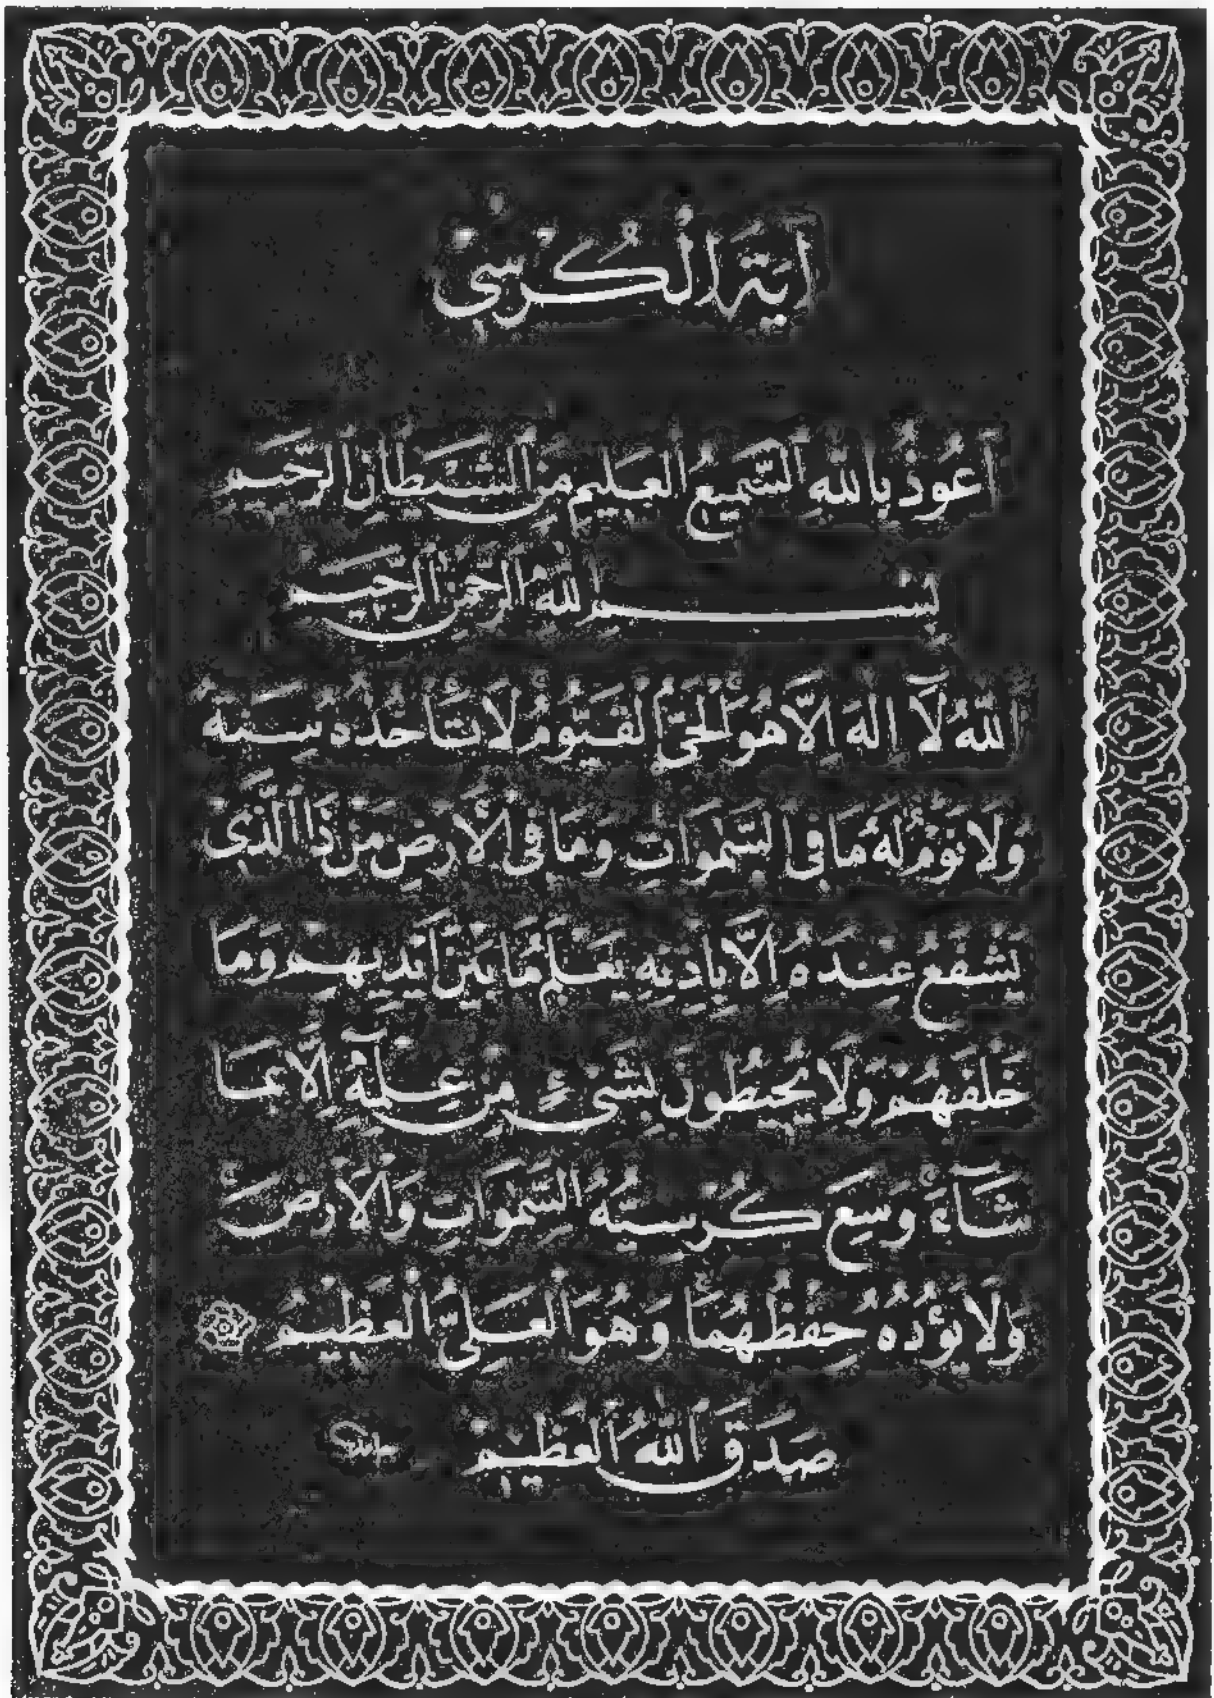 اٰيَةُ الْكُرْسِي
اَعُوذُ بِاللّٰهِ السَّمِيعِ الْعَلِيمِ مِنَ الشَّيْطَانِ الرَّجِيمِ
بِسْمِ اللّٰهِ الرَّحْمٰنِ الرَّحِيمِ
اَللّٰهُ لَآ اِلٰهَ اِلَّا هُوَ الْحَىُّ الْقَيُّومُ لَا تَأْخُذُهُ سِنَةٌ
وَلَا نَوْمٌ لَهُ مَا فِى السَّمٰوَاتِ وَمَا فِى الْاَرْضِ مَنْ ذَا الَّذِى
يَشْفَعُ عِنْدَهُ اِلَّا بِاِذْنِهِ يَعْلَمُ مَا بَيْنَ اَيْدِيهِمْ وَمَا
خَلْفَهُمْ وَلَا يُحِيطُونَ بِشَىْءٍ مِنْ عِلْمِهِ اِلَّا بِمَا
شَآءَ وَسِعَ كُرْسِيُّهُ السَّمٰوَاتِ وَالْاَرْضَ
وَلَا يَؤُدُهُ حِفْظُهُمَا وَهُوَ الْعَلِىُّ الْعَظِيمُ
صَدَقَ اللّٰهُ الْعَظِيمُ